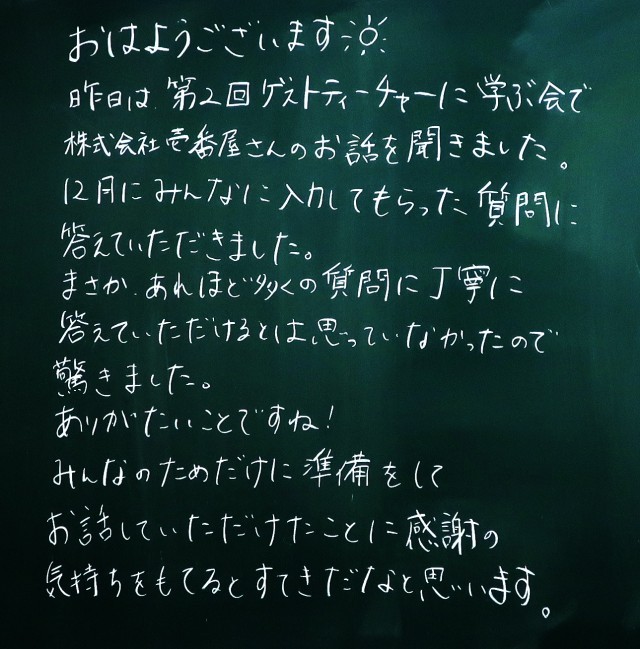 おはようございます
昨日は、第2回ゲストティーチャーに学ぶ会で
株式会社壱番屋さんのお話を聞きました。
12月にみんなに入力してもらった質問に
答えていただきました。
まさか、あれほど多くの質問に丁寧に
答えていただけるとは思っていなかったので
驚きました。
ありがたいことですね!
みんなのためだけに準備をして
お話していただけたことに感謝の
気持ちをもてるとすてきだなと思います。